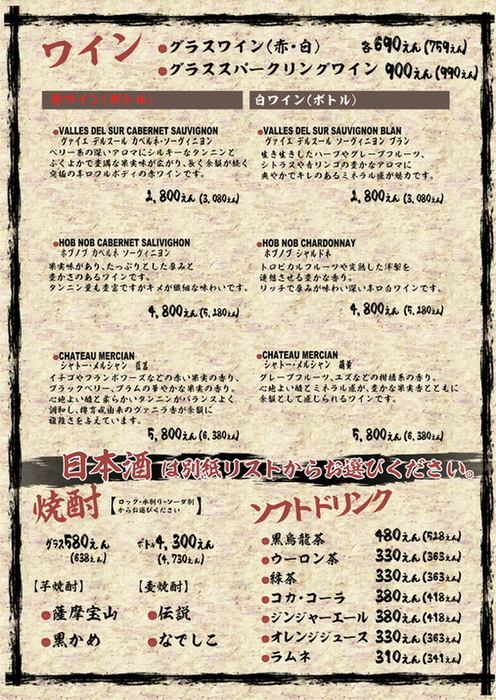 ワイン
●グラスワイン(赤・白) 各690えん(759えん)
●グラススパークリングワイン 900えん(990えん)
赤ワイン(ボトル)
●VALLES DEL SUR CABERNET SAUVIGNON
ヴァイエ デルスール カベルネ・ソーヴィニヨン
ベリー系の深いアロマにシルキーなタンニンと
ふくよかで豊満な果実味が広がり、長く余韻が続く
究極の辛口フルボディの赤ワインです。
2,800えん(3,080えん)
●HOB NOB CABERNET SALIVIGHON
ホブノブ カベルネ ソーヴィニヨン
果実味があり、たっぷりとした厚みと
豊かさのあるワインです。
タンニン量も豊富ですがキメが微細な味わいです。
4,800えん(5,280えん)
●CHATEAU MERCIAN
シャトー・メルシャン 藍茜
イチゴやフランボワーズなどの赤い果実の香り、
ブラックベリー、プラムの華やかな果実の香り。
心地よい酸と柔らかいタンニンがバランスよく
調和し、樽育成由来のヴァニラ香が余韻に
複雑さを与えています。
5,800えん(6,380えん)
白ワイン(ボトル)
●VALLES DEL SUR SAUVIGNON BLAN
ヴァイエ デルスール ソーヴィニヨン ブラン
生き生きしたハーブやグレープフルーツ、
シトラスや青リンゴの豊かなアロマに
爽やかでキレのあるミネラル感が魅力です。
2,800えん(3,080えん)
●HOB NOB CHARDONNAY
ホブノブ シャルドネ
トロピカルフルーツや完熟した洋梨を
連想させる豊かな香り。
リッチで厚みが味わい深い辛口白ワインです。
4,800えん(5,280えん)
●CHATEAU MERCIAN
シャトー・メルシャン 萌黄
グレープフルーツ、ユズなどの柑橘系の香り。
心地よい酸とミネラル感が、豊かな果実香とともに
余韻として感じられるワインです。
5,800えん(6,380えん)
日本酒は別紙リストからお選びください。
焼酎【ロック・水割り・ソーダ割からお選びください】
グラス580えん(638えん)
ボトル4,300えん(4,730えん)
【芋焼酎】
●薩摩宝山
●黒かめ
【麦焼酎】
●伝説
●なでしこ
ソフトドリンク
●黒烏龍茶 480えん(528えん)
●ウーロン茶 330えん(363えん)
●緑茶 330えん(363えん)
●コカ・コーラ 380えん(418えん)
●ジンジャーエール 380えん(418えん)
●オレンジジュース 330えん(363えん)
●ラムネ 310えん(341えん)